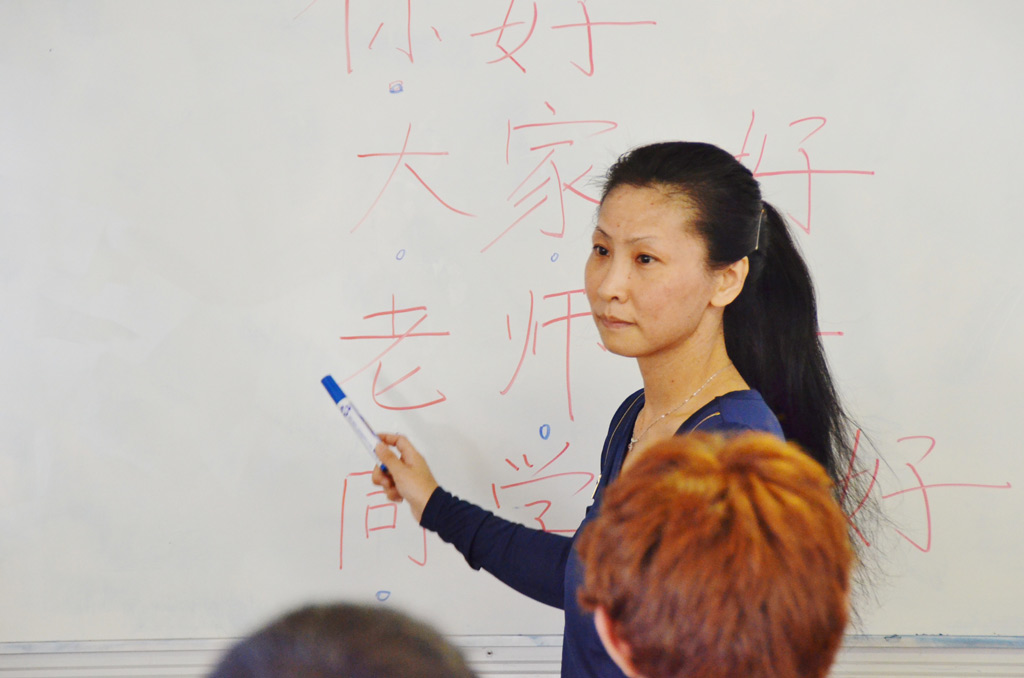 你好
大家 好
老师
同学 好